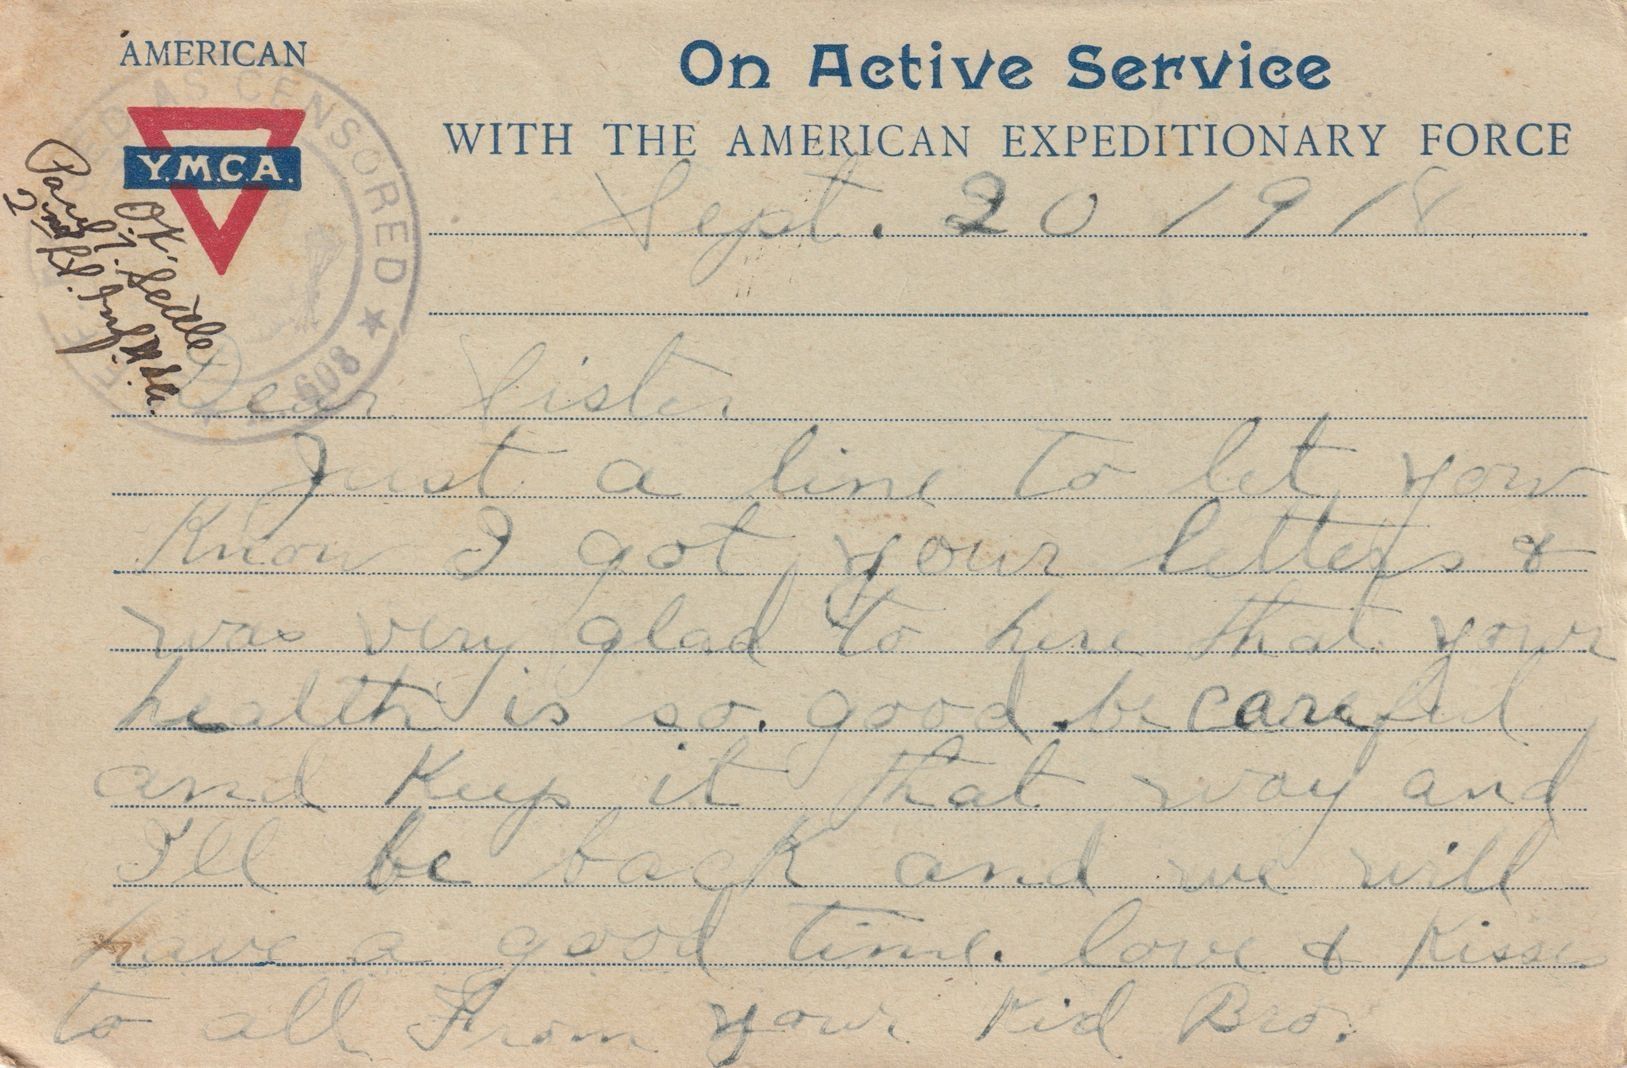 AMERICAN
Y.M.C.A.
On Active Service
WITH THE AMERICAN EXPEDITIONARY FORCE
AS CENSORED
A. E. F.
608
OK
Paul J.
2nd Lt. Inf.
Sept. 20 1918
Dear Sister
Just a line to let you
Know I got your letters &
was very glad to here that your
health is so. good. be careful
and Keep it that way and
I'll be back and we will
have a good time. love & Kisses
to all From your Kid Bro.